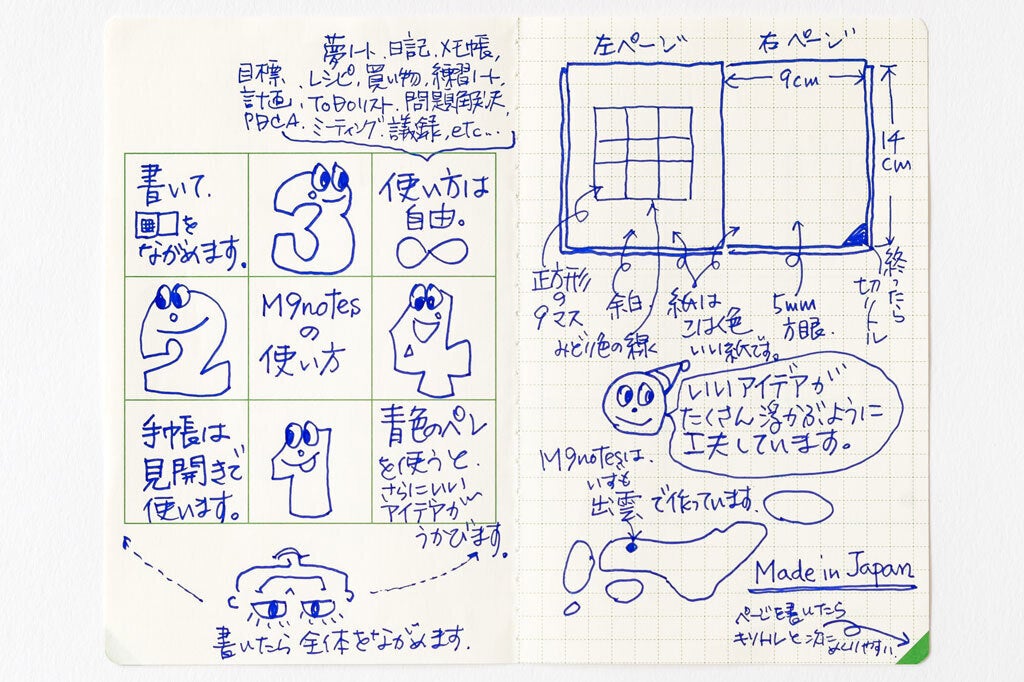 夢ノート、日記、メモ帳、
目標、レシピ、買い物、練習ノート、
計画、ToDoリスト、問題解決、
PDCA、ミーティング、議録、etc...
書いて、
を
ながめます。
3
使い方は
自由。
∞
2
M9notes
の
使い方
4
手帳は
見開きで
使います。
1
青色のペン
を使うと、
さらにいい
アイデアが
うかびます。
書いたら全体をながめます。
左ページ
右ページ
9cm
14
cm
正方形
の
9マス
余白
みどり色の線
紙は
こはく色
いい紙です。
5mm
方眼。
終ったら
切りトル
いいアイデアが
たくさん浮かぶように
工夫しています。
M9notesは、
いずも
出雲で作っています。
Made in Japan
ページを書いたら
キリトルと次に